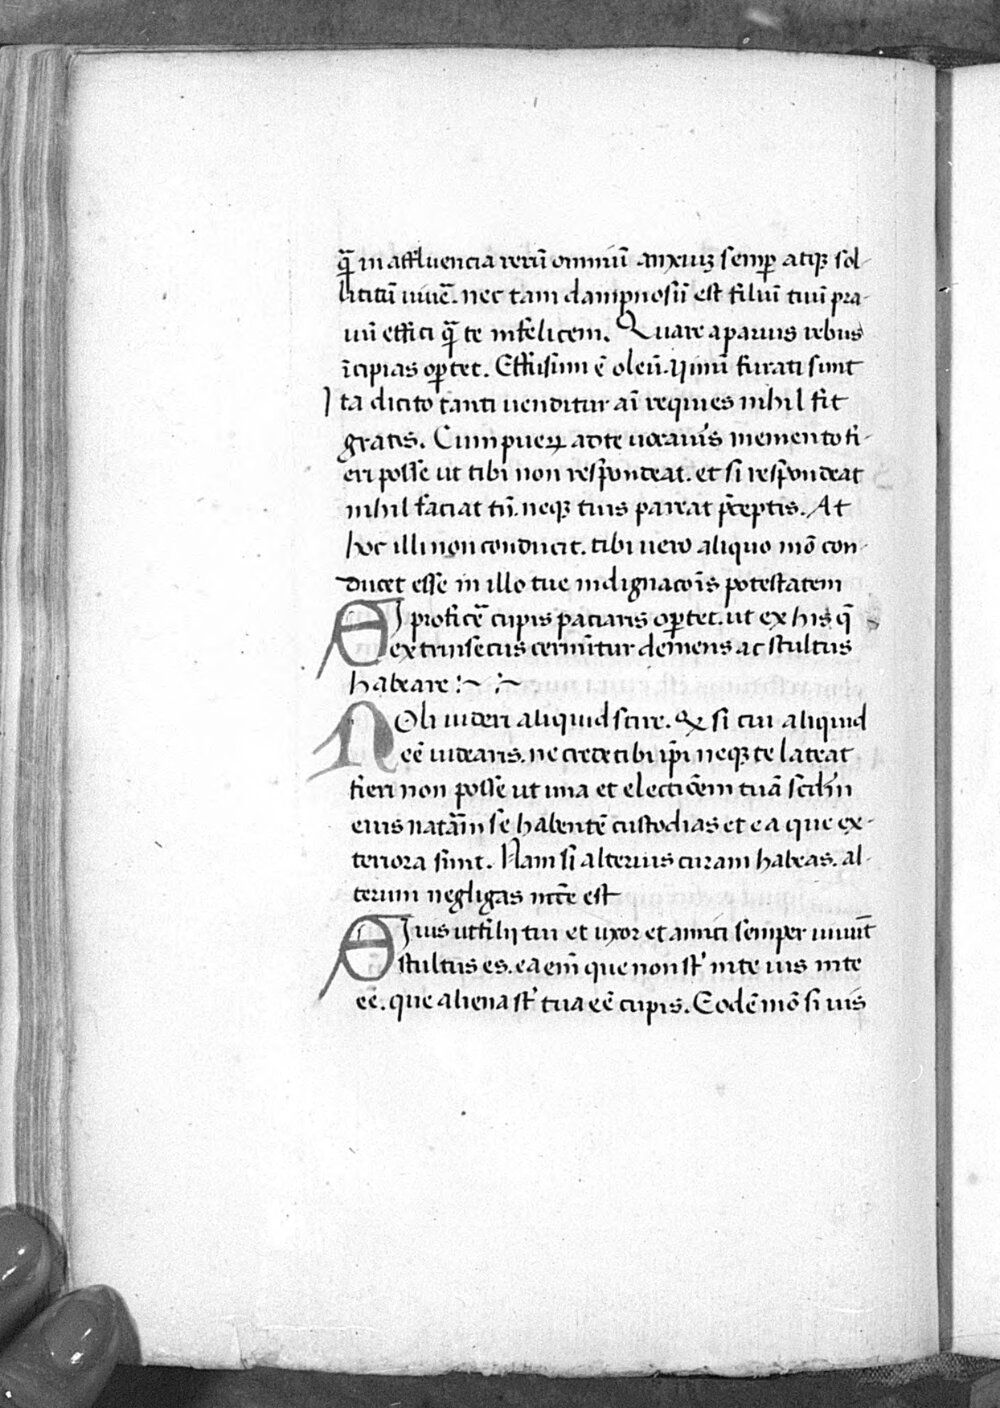 q̄ꝫ in affluencia rerū omniū anxiuꝫ semꝑ atqꝫ sol-
licitū viuē. nec tam dampnosū est filiū tuū pra-
uū effici q̄ꝫ te infelicem. Quare a paruis rebus
īcipias oportet. Effusum ē oleū. vinū furati sunt
Ita dicito tanti venditur aī requies nihil fit
gratis. Cum pueꝝ ad te vocaueris memento fi-
eri posse ut tibi non respondeat. et si respondeat
nihil faciat tn̄. neqꝫ tuis pareat p̄ceptis. At
hoc illi non conducit. tibi vero aliquo mō con-
ducet esse in illo tue indignacōis potestatem
SI proficē cupis paciaris oportet. ut ex his q̄
extrinsecus cernūtur demens ac stultus
habeare :~ :~
NOli videri aliquid scire. Qꝫ si cui aliquid
eē videaris. ne crede tibi ip̄i neqꝫ te lateat
fieri non posse ut una et electiōem tuā scd̄m
eius natām se habentē custodias et ea que ex-
teriora sunt. Nam si alterius curam habeas. al-
terum negligas neccē est
SI vis ut filij tui et uxor et amici semper viuāt
stultus es. ea em̄ que non sūt in te vis in te
eē. que aliena sūt tua eē cupis. Eodē mō si vis